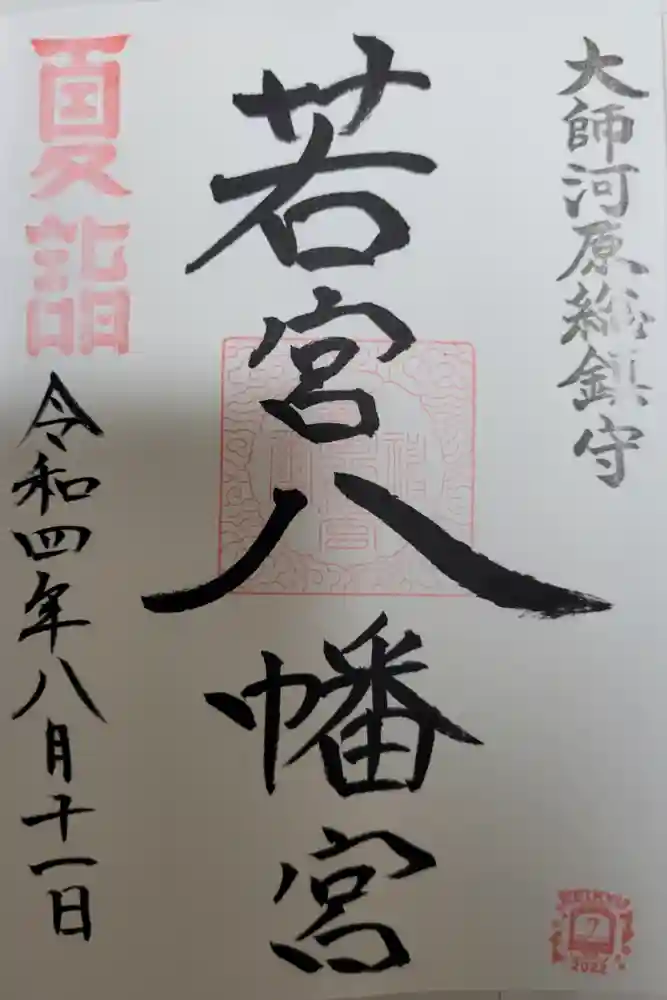 大師河原総鎮守
若宮八幡宮
夏詣
令和四年八月十一日
7
2022